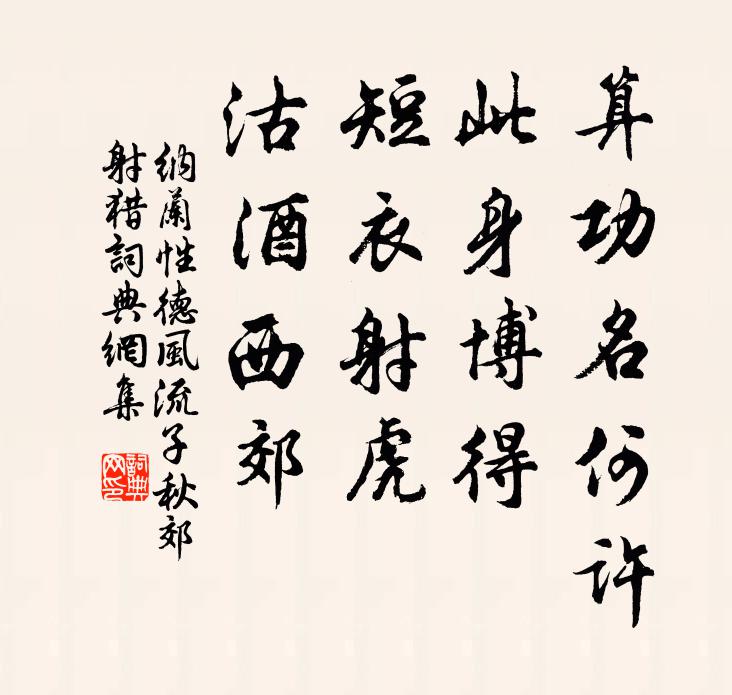 算功名何許
此身博得
短衣射虎
沽酒西郊
納蘭性德風流子秋郊
射猎詞典網集
詞典网印